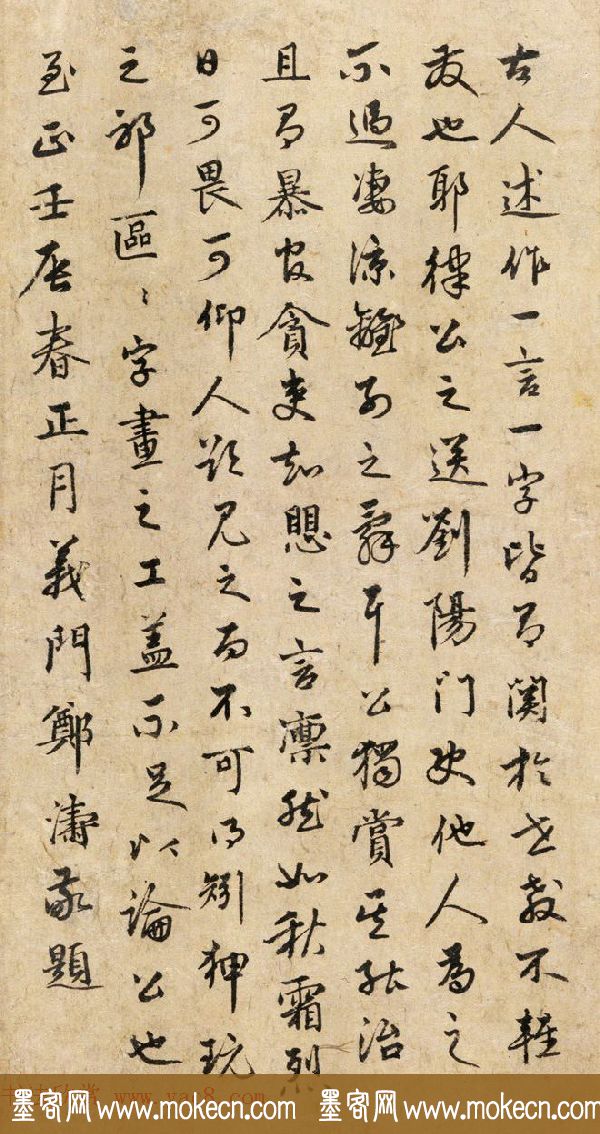 古人述作一言一字皆有関於世教不輕
發也耶律公之送劉陽門使他人為之
不過凄涼離別之辭耳公獨賞其能治
且有暴官貪吏知愳之言凜然如秋霜烈
日可畏可仰人欲見之而不可得矧狎玩
之邪區〻字畫之工蓋不足以論公也
至正壬辰春正月義門鄭濤敬題
書法欣賞 www.yac8.com
墨客网 www.mokecn.com 墨客网 www.mokecn.com